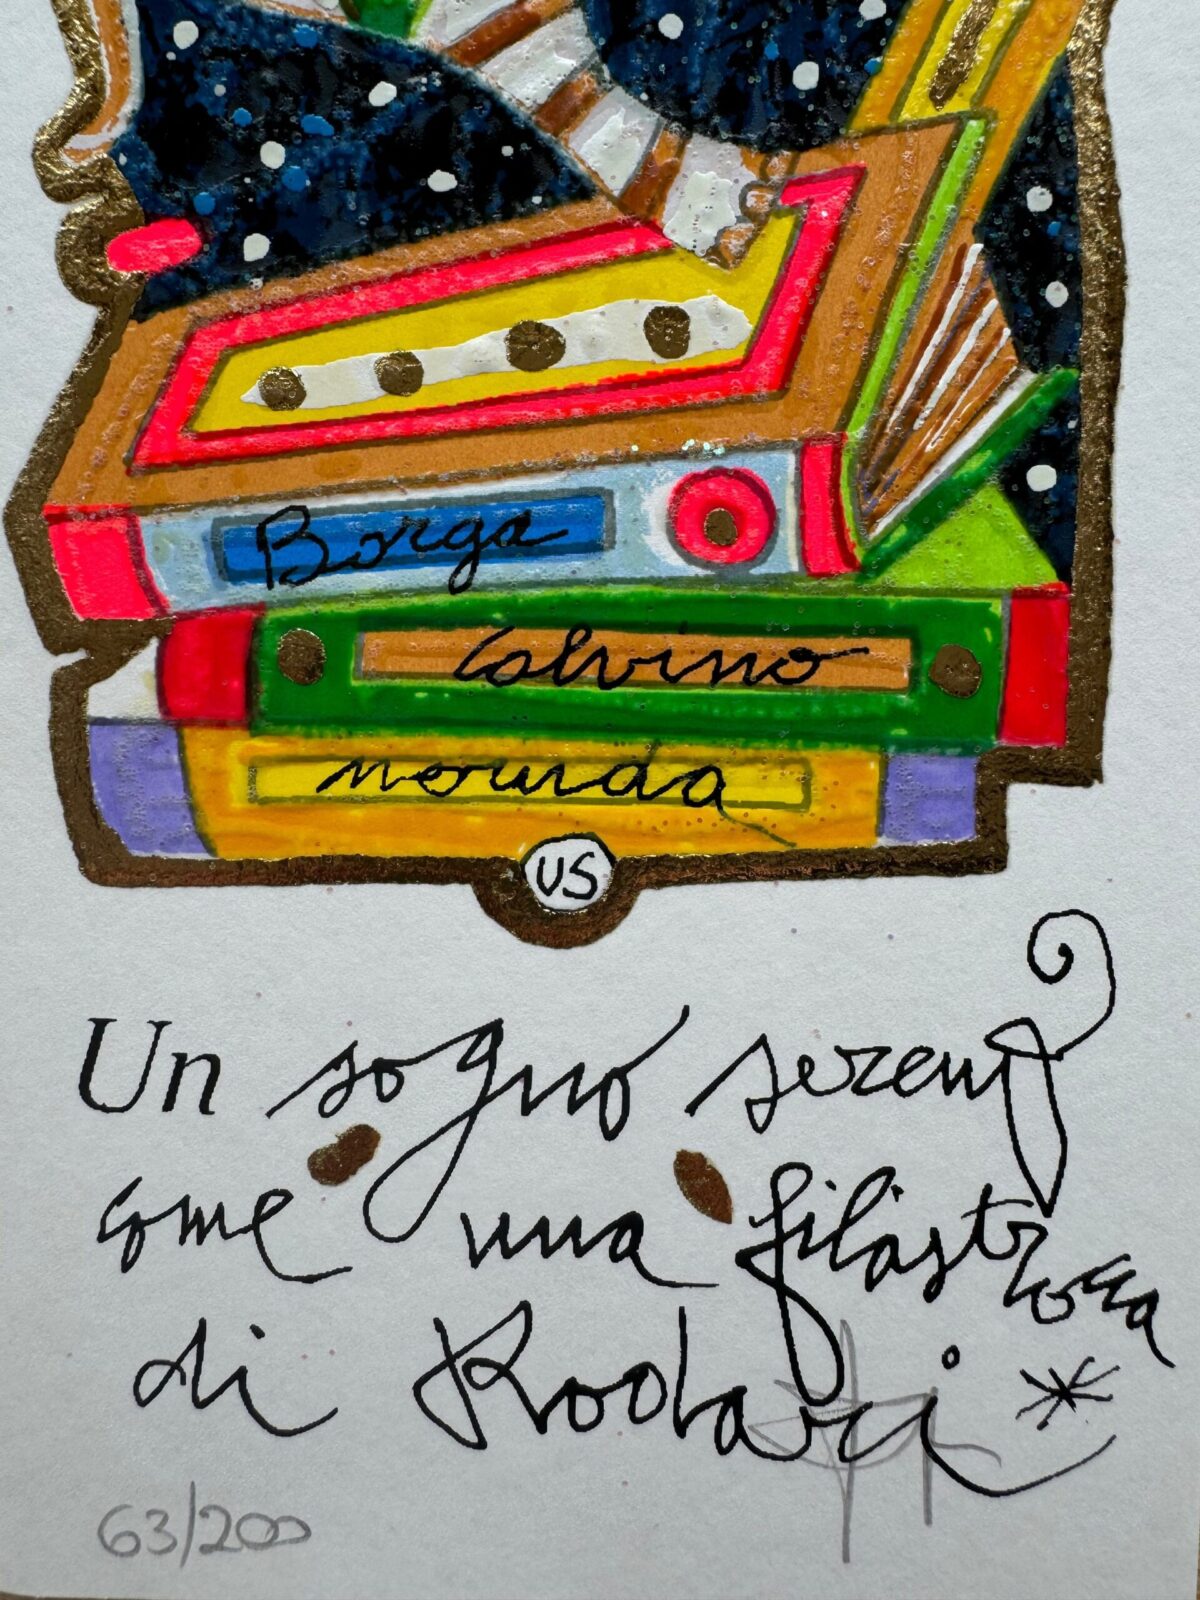 Borga
Calvino
neruda
US
Un sogno sereno
come una filastrocca
di Rodari *
63/200